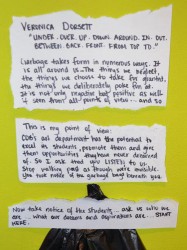 VERONICA DORSETT
"UNDER. OUCH. UP. DOWN. AROUND. IN. OUT.
BETWEEN. BACK. FRONT. FROM TOP TO."
Garbage takes form in numerous ways. It
is all around us... The things we neglect,
the things we choose to take for granted,
the things we deliberately poke fun at.
is not only negative but positive as well
seen from all points of view... and so
This is my point of view:
COB's art department has the potential to
excel its students, promote them and give
them opportunities they have never dreamed
of. So I ask that you LISTEN to us.
Stop walking past as though we're invisible.
you take notice of the garbage bag beneath you.
Now take notice of the students... ask us who we
are... what our dreams and aspirations are. START
HERE